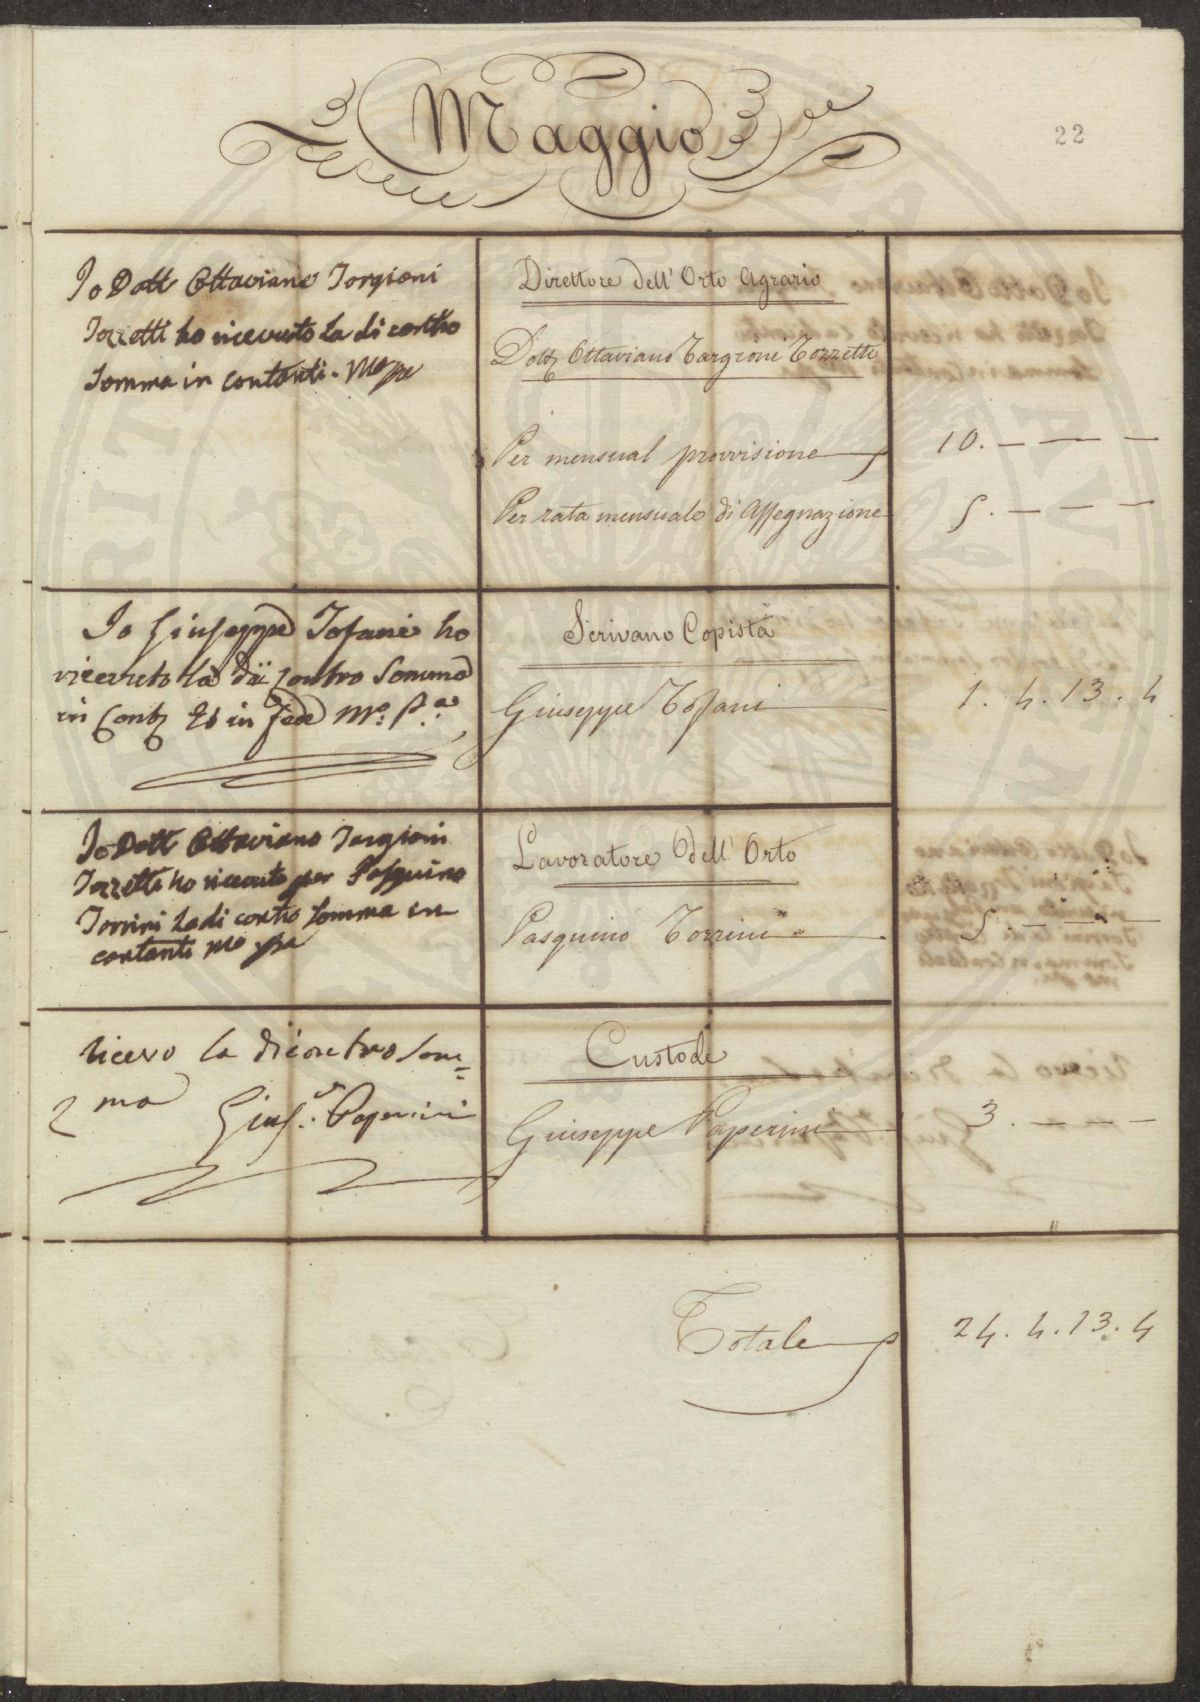 Maggio
22
Io Dott Ottaviano Torgioni
Tozzetti ho ricevuto La di contro
Somma in contanti. Mo pa
Direttore dell' Orto Agrario
Dott Ottaviano Targioni Tozzetti
Per mensual provvisione
10. — — —
Per rata mensuale di Assegnazione
5. — — —
Io Giuseppe Tofani ho
ricevuto la di contro Somma
in Cont Et in fede Mo: Pa
Scrivano Copista
Giuseppe Tofani
1. 4. 13. 4
Io Dott Ottaviano Targioni
Tozzetti ho ricevuto per Pasquino
Torrini La di contro Somma in
contanti mo pa
Lavoratore dell' Orto
Pasquino Torrini
5. — — —
ricevo la di contro Som=
ma
Gius.e Paperini
Custode
Giuseppe Paperini
3. — — —
Totale
24. 4. 13. 4